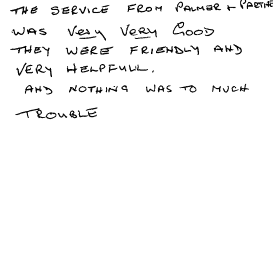 THE SERVICE FROM PALMER + PARTNE
WAS VERY VERY GOOD
THEY WERE FRIENDLY AND
VERY HELPFULL.
AND NOTHING WAS TO MUCH
TROUBLE